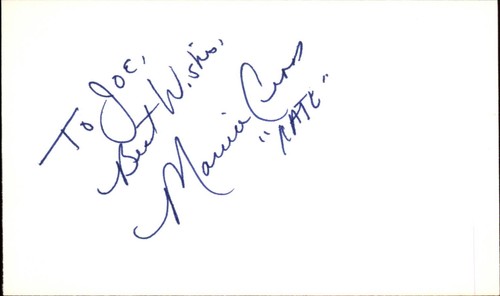 To Joe,
Best Wishes,
Marcia Cross
"KATE"